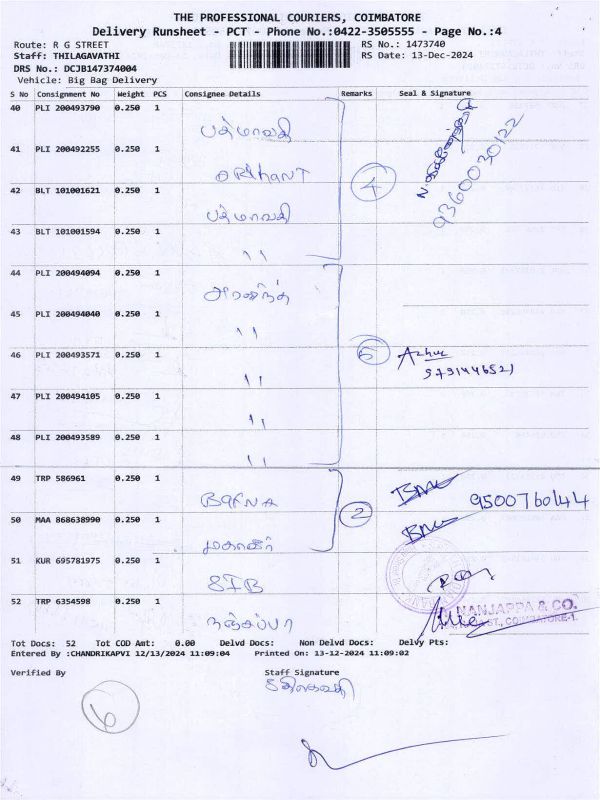 THE PROFESSIONAL COURIERS, COIMBATORE
Delivery Runsheet - PCT - Phone No.:0422-3505555 - Page No.:4
Route: R G STREET RS No.: 1473740
Staff: THILAGAVATHI RS Date: 13-Dec-2024
DRS No.: DCJB147374004
Vehicle: Big Bag Delivery
S No Consignment No Weight PCS Consignee Details Remarks Seal & Signature
40 PLI 200493790 0.250 1 பத்மாவதி
41 PLI 200492255 0.250 1 ORIHANT 4 9360030122
42 BLT 101001621 0.250 1 பத்மாவதி
43 BLT 101001594 0.250 1 ''
44 PLI 200494094 0.250 1 அரவிந்த்
45 PLI 200494040 0.250 1 ''
46 PLI 200493571 0.250 1 '' 5 9791446521
47 PLI 200494105 0.250 1 ''
48 PLI 200493589 0.250 1 ''
49 TRP 586961 0.250 1 BafNA 9500760144
50 MAA 868638990 0.250 1 மகாவீர் 2
51 KUR 695781975 0.250 1 SIB
52 TRP 6354598 0.250 1 நஞ்சப்பா NANJAPPA & CO.
ST., COIMBATORE-1.
Tot Docs: 52 Tot COD Amt: 0.00 Delvd Docs: Non Delvd Docs: Delvy Pts:
Entered By :CHANDRIKAPVI 12/13/2024 11:09:04 Printed On: 13-12-2024 11:09:02
Verified By Staff Signature
6